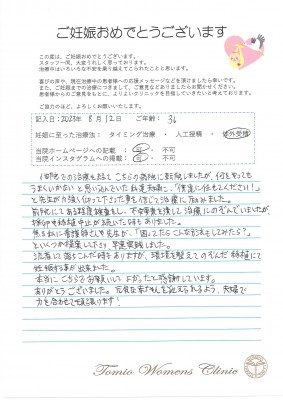 ご妊娠おめでとうございます
この度は、ご妊娠おめでとうございます。
スタッフ一同、大変うれしく思っております。
治療中はいろいろな不安を乗り越えてこられたことと思います。
喜びの声や、現在治療中の患者様への応援メッセージなどを頂けましたら幸いです。
また、ご妊娠までの治療につきまして、ご意見などありましたらお聞かせください。
患者様からのご意見をもとに、よりよいクリニックを目指していきたいと考えております。
ご協力のほど、よろしくお願いいたします。
記入日：2023年 8月 12日 ご年齢： 36
妊娠に至った治療法： タイミング治療 ・ 人工授精 ・ 体外受精
当院ホームページへの記載 ： 可 ・ 不可
当院インスタグラムへの掲載 ： 可 ・ 不可
1回目での治療を経て こちらの病院に転院しましたが、何をやっても
うまくいかないと思い込んでいた私達夫婦に、「僕達に任せてください！」
と先生が力強く仰って下さった事を信じて治療に励みました。
前院にてある程度検査をし、不安要素を潰して治療にのぞんでいましたが、
採卵や移植中止が続いた時もありました。
焦る私に看護師さんや先生が、「困ってたらこんな方法もしてみたら？」
といくつか提案して下さり、早速実践しました。
流産して落ちこんだ時もありますが、環境を整えてのぞんだ移植にて
妊娠する事が出来ました。
本当にこちらでお世話になってよかったと感謝しています。
ありがとうございました。元気な赤ちゃんを迎えられるよう、夫婦で
力を合わせて頑張ります！
Tomio Womens Clinic